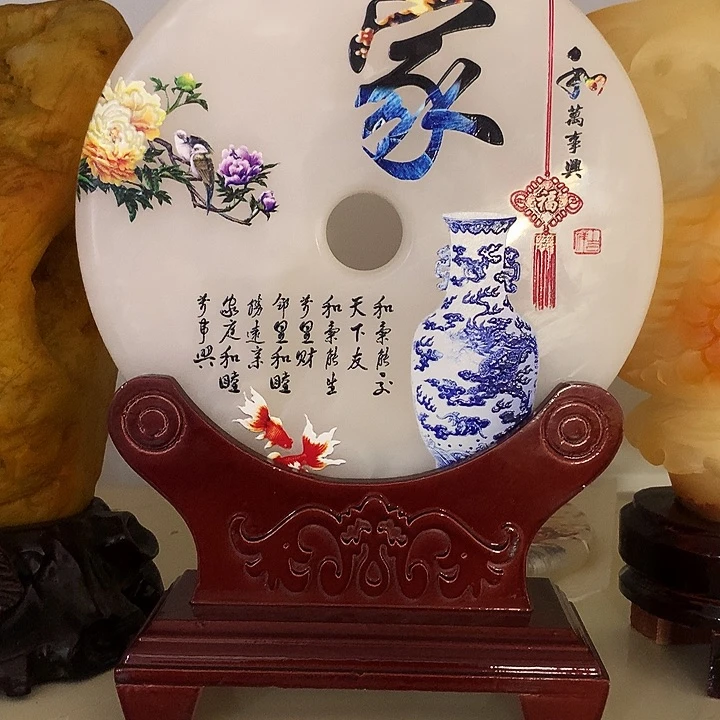 家
和萬事興
福
吉祥
和氣能交
天下友
和氣能生
萬里财
邻里和睦
勝遠亲
家庭和睦
萬事興